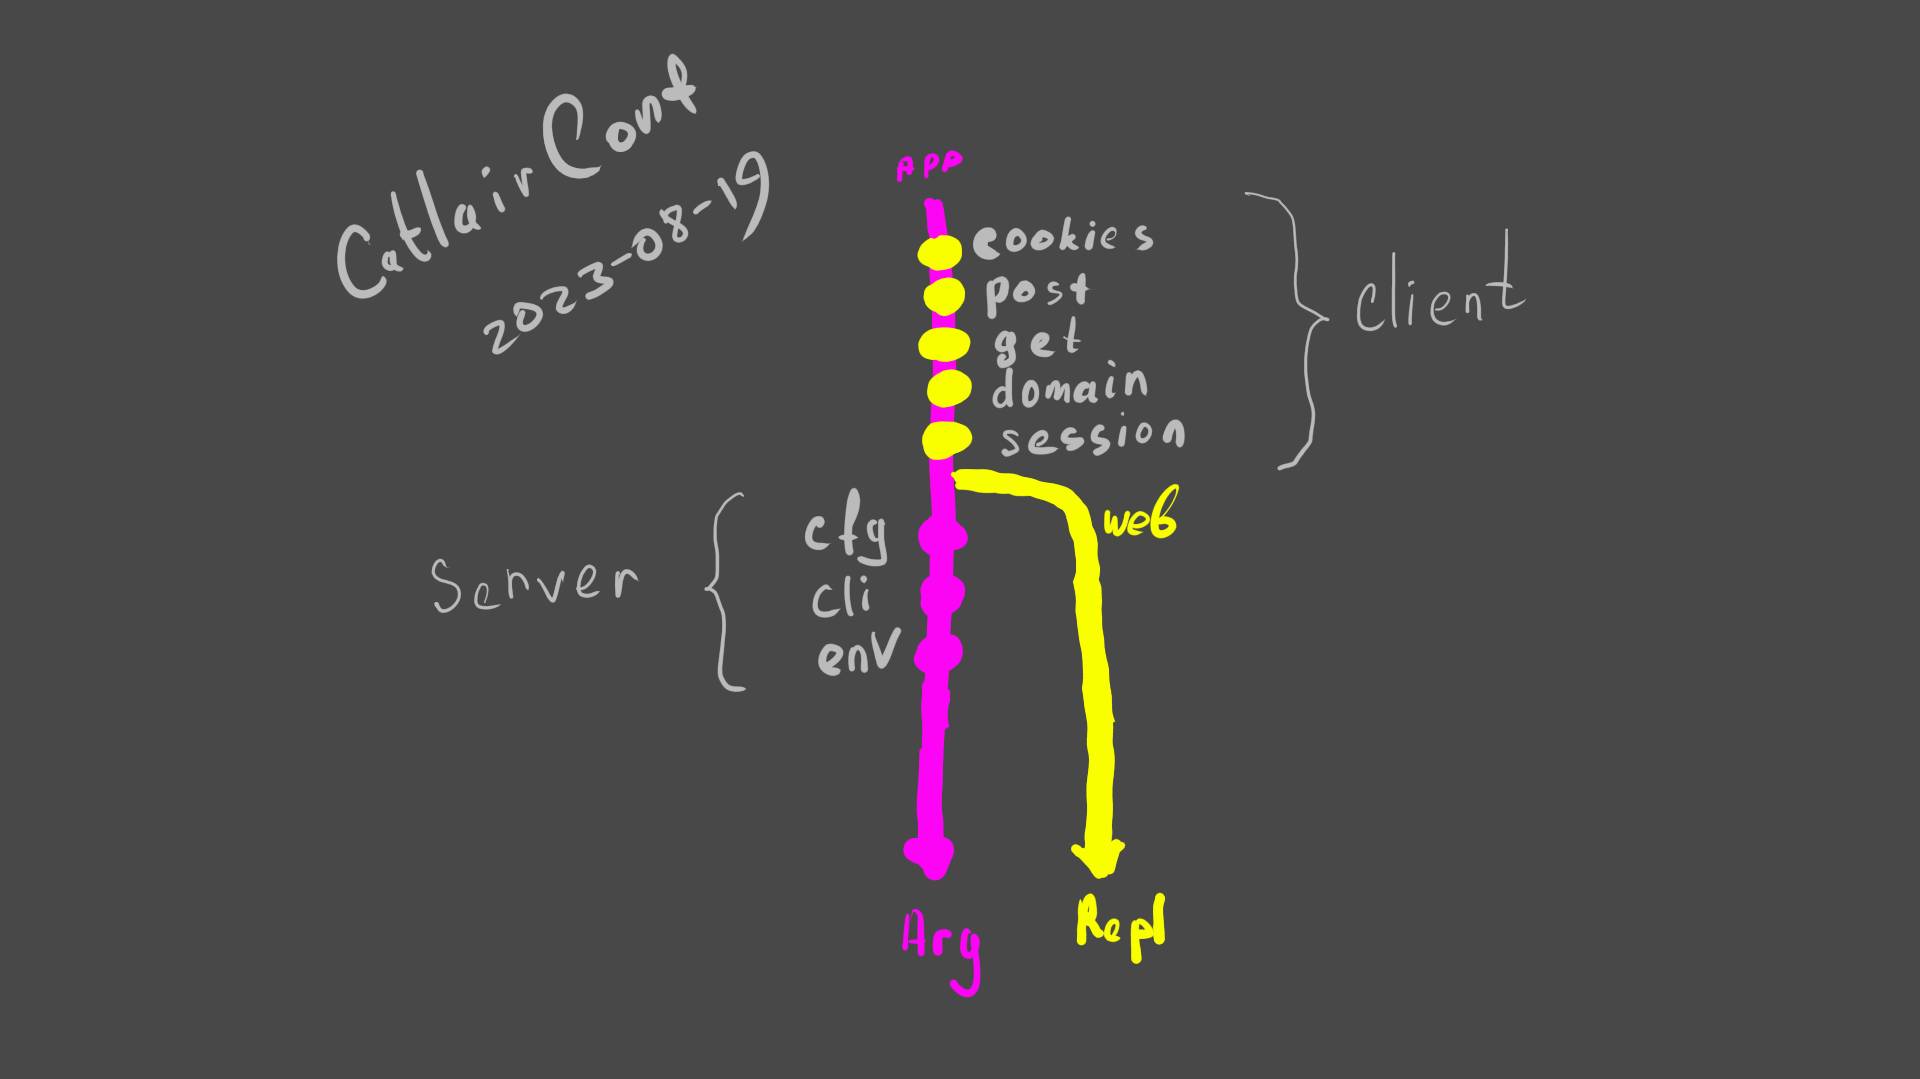 Catlair Conf
2023-08-19
APP
cookies
post
get
domain
session
Client
web
cfg
cli
env
Server
Arg
Repl